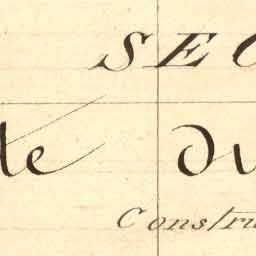 SEC
te du
Constru